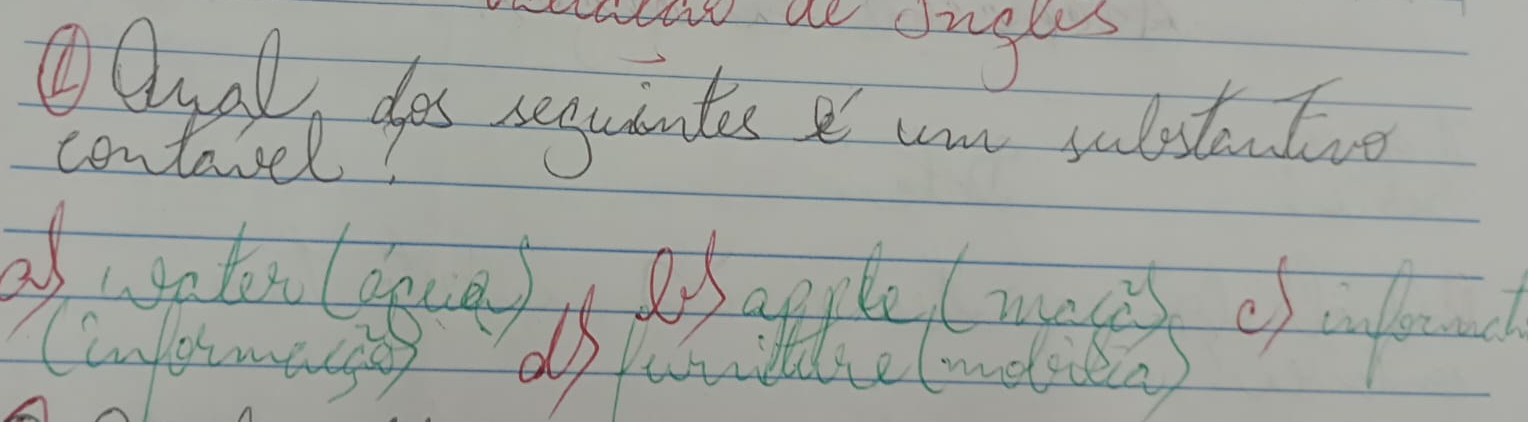 de Ingles
① Qual, dos seguintes é um substantivo
contável?
a) water (água), b) apple, (maçã), c) informat
(informação) d) furniture (mobília)